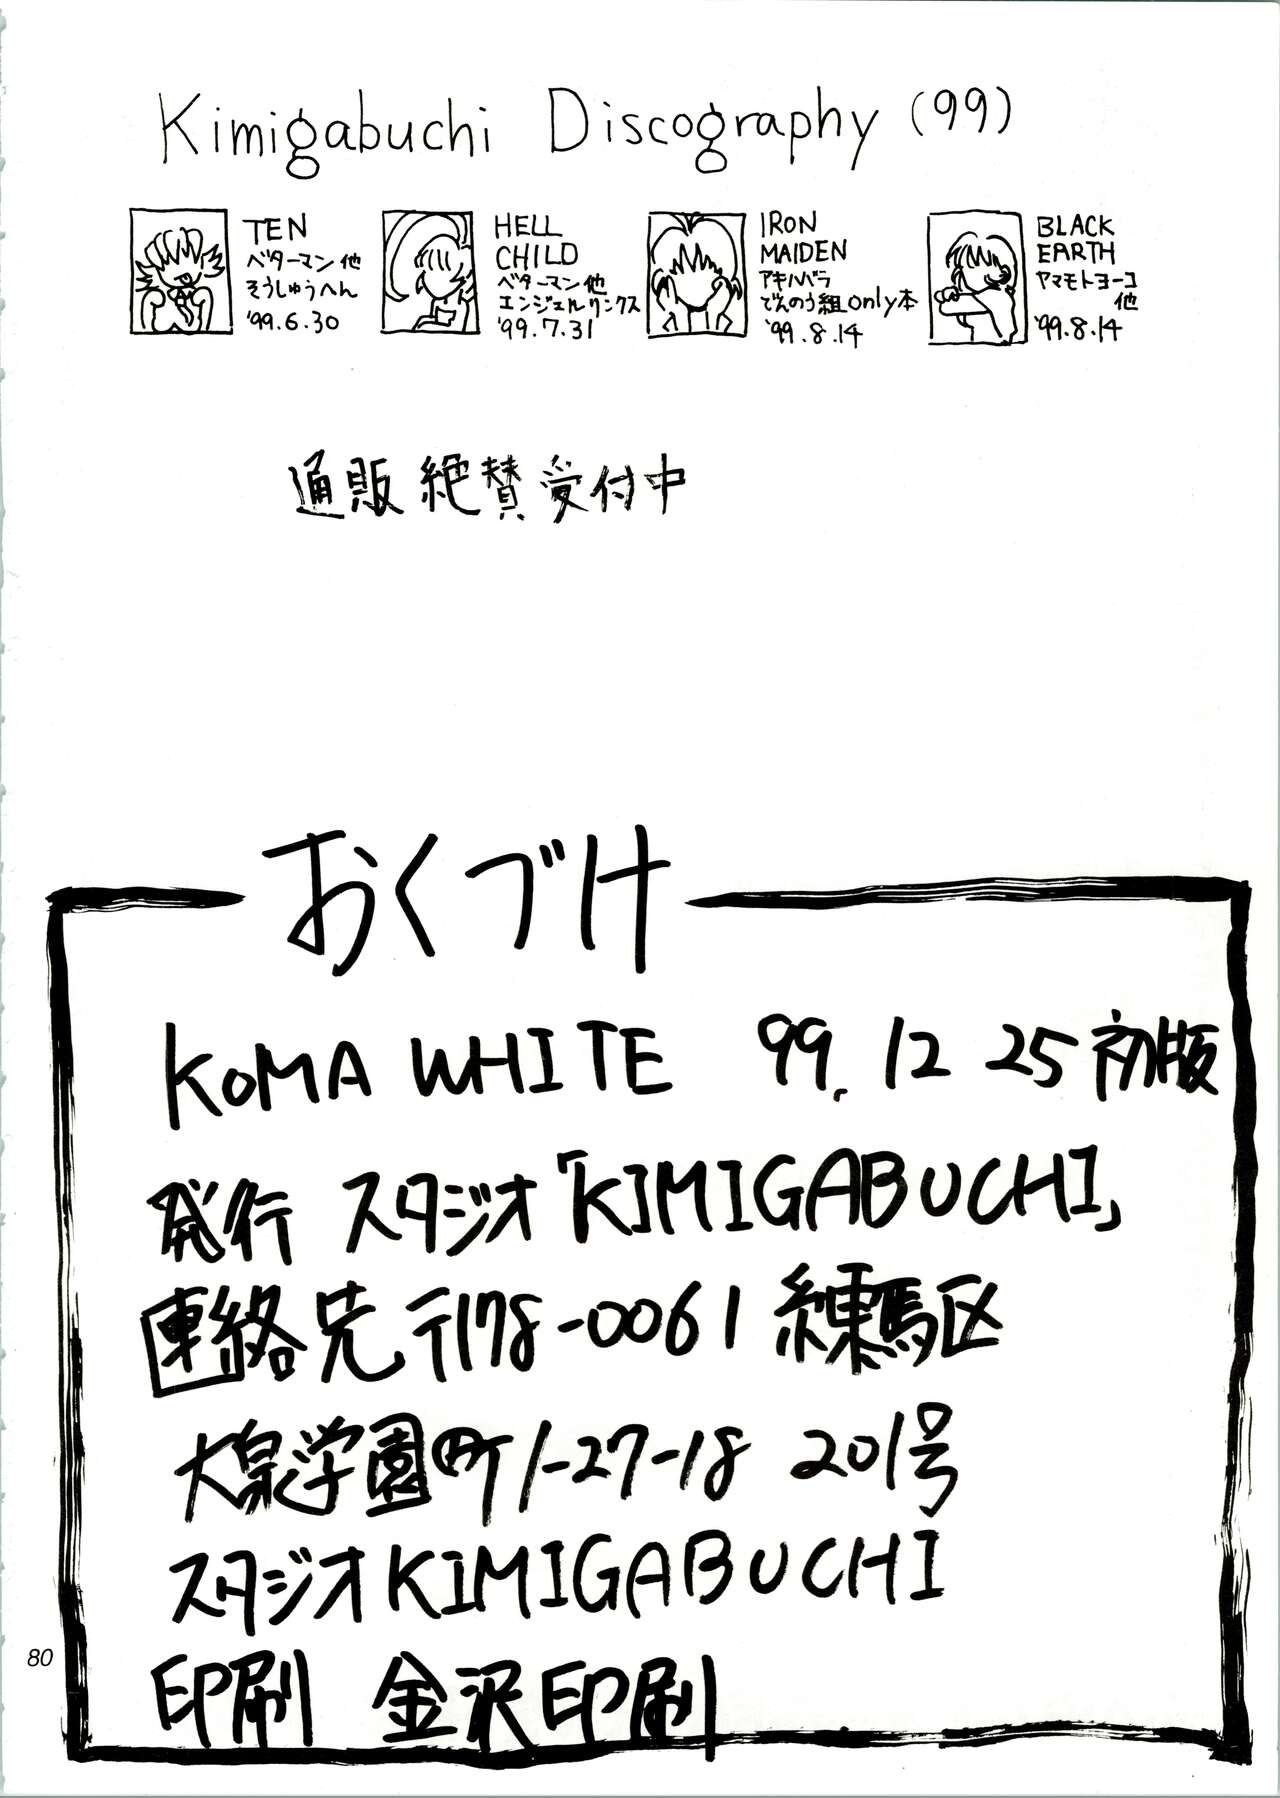 Kimigabuchi Discography (99)
TEN
ベターマン他
そうしゅうへん
'99.6.30
HELL
CHILD
ベターマン他
エンジェルリンクス
'99.7.31
IRON
MAIDEN
アキハバラ
でんのう組only本
'99.8.14
BLACK
EARTH
ヤマモトヨーコ
他
'99.8.14
通販 絶賛 受付中
おくづけ
KoMA WHITE 99.12 25 初版
発行 スタジオ「KIMIGABUCHI」
連絡先 〒178-0061 練馬区
大泉学園町1-27-18 201号
スタジオKIMIGABUCHI
印刷 金沢印刷
80